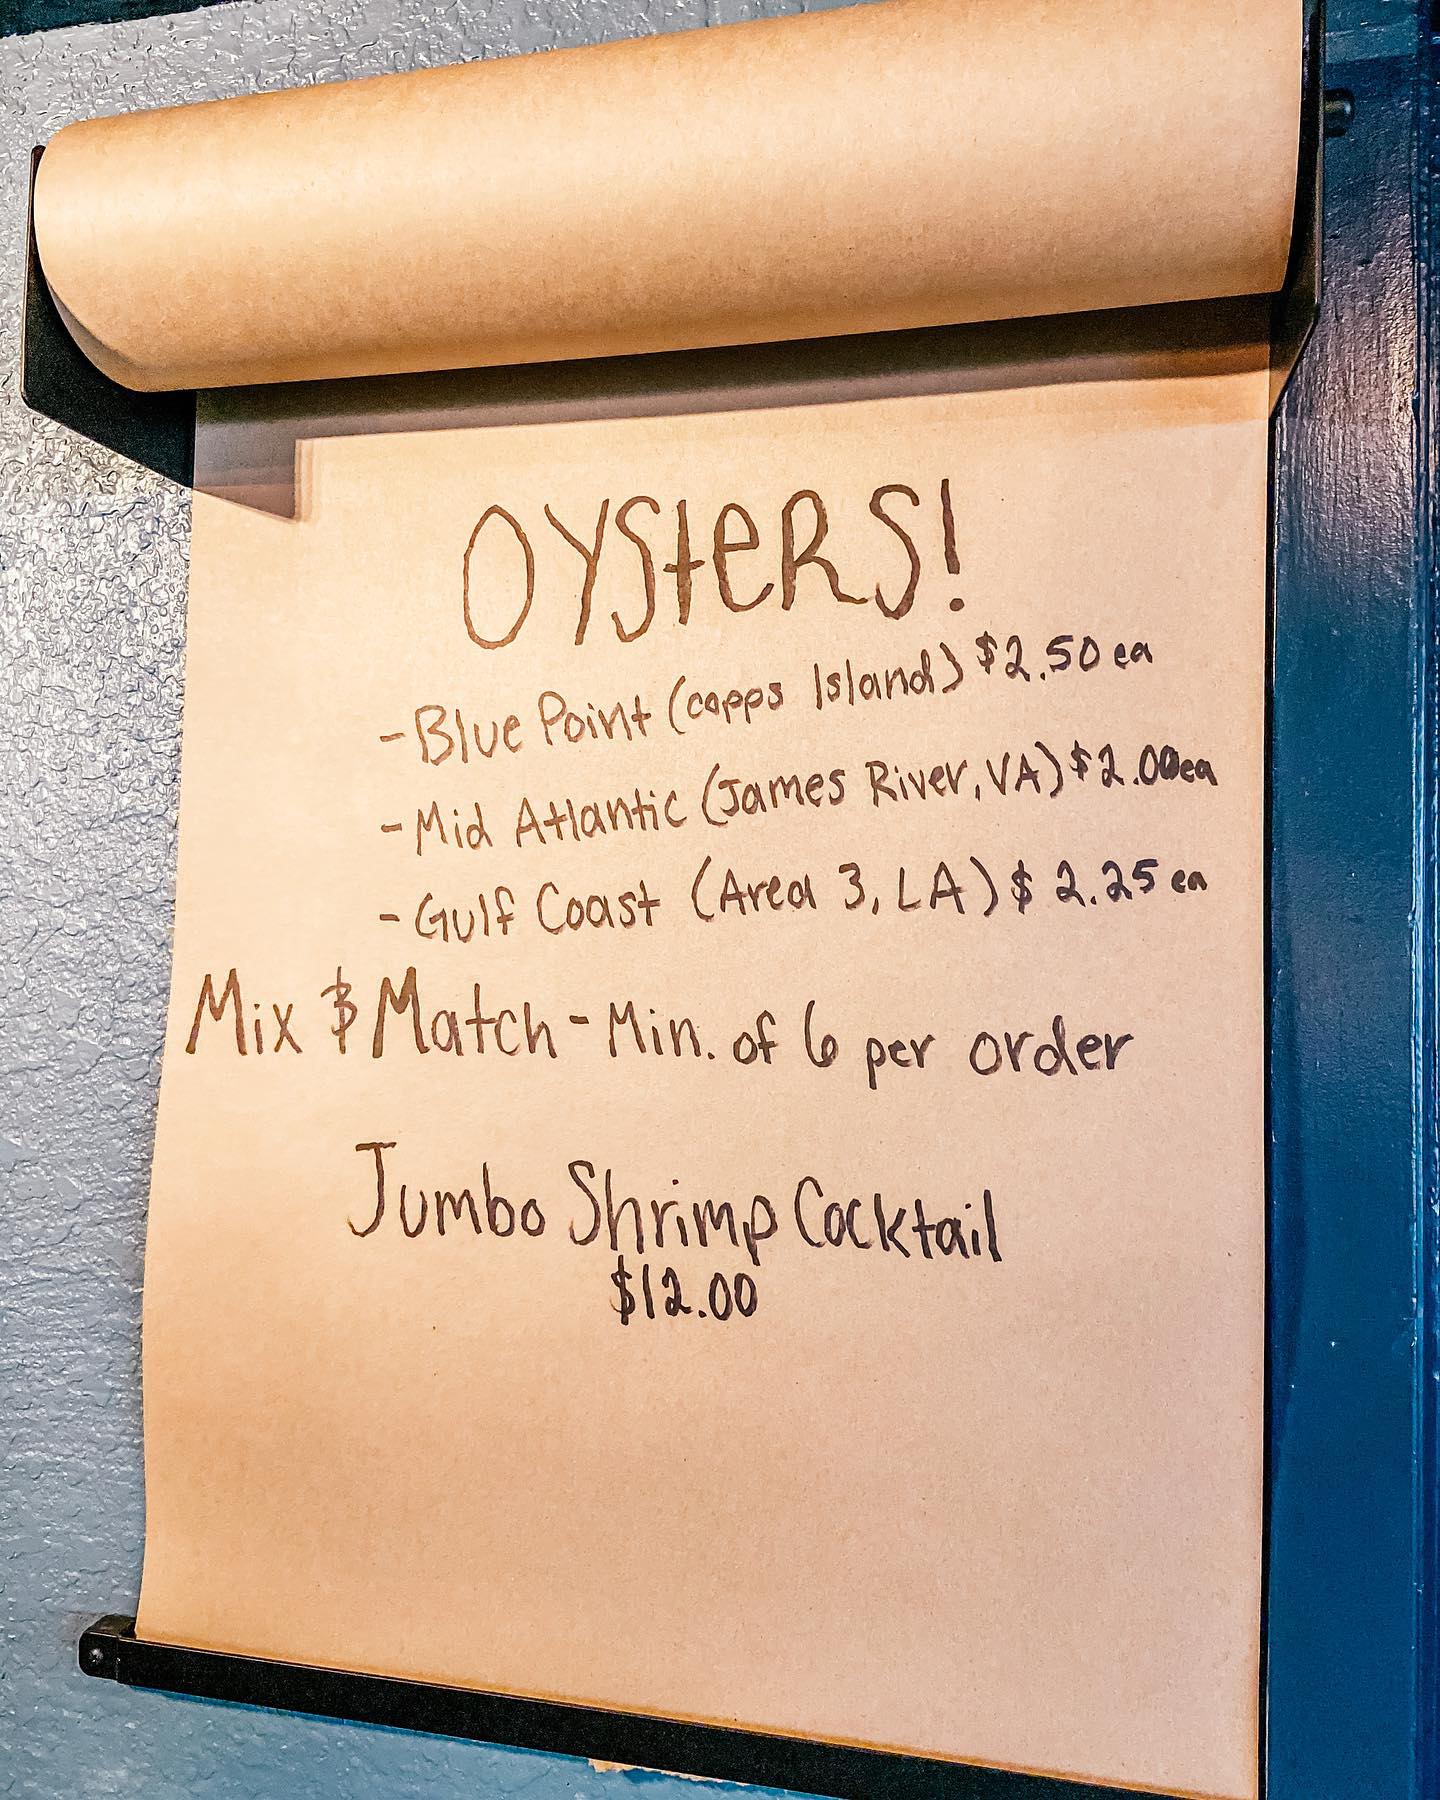 OYSTERS!
- Blue Point (capps Island) $2.50 ea
- Mid Atlantic (James River, VA) $2.00ea
- Gulf Coast (Area 3, LA) $2.25 ea
Mix & Match - Min. of 6 per order
Jumbo Shrimp Cocktail
$12.00